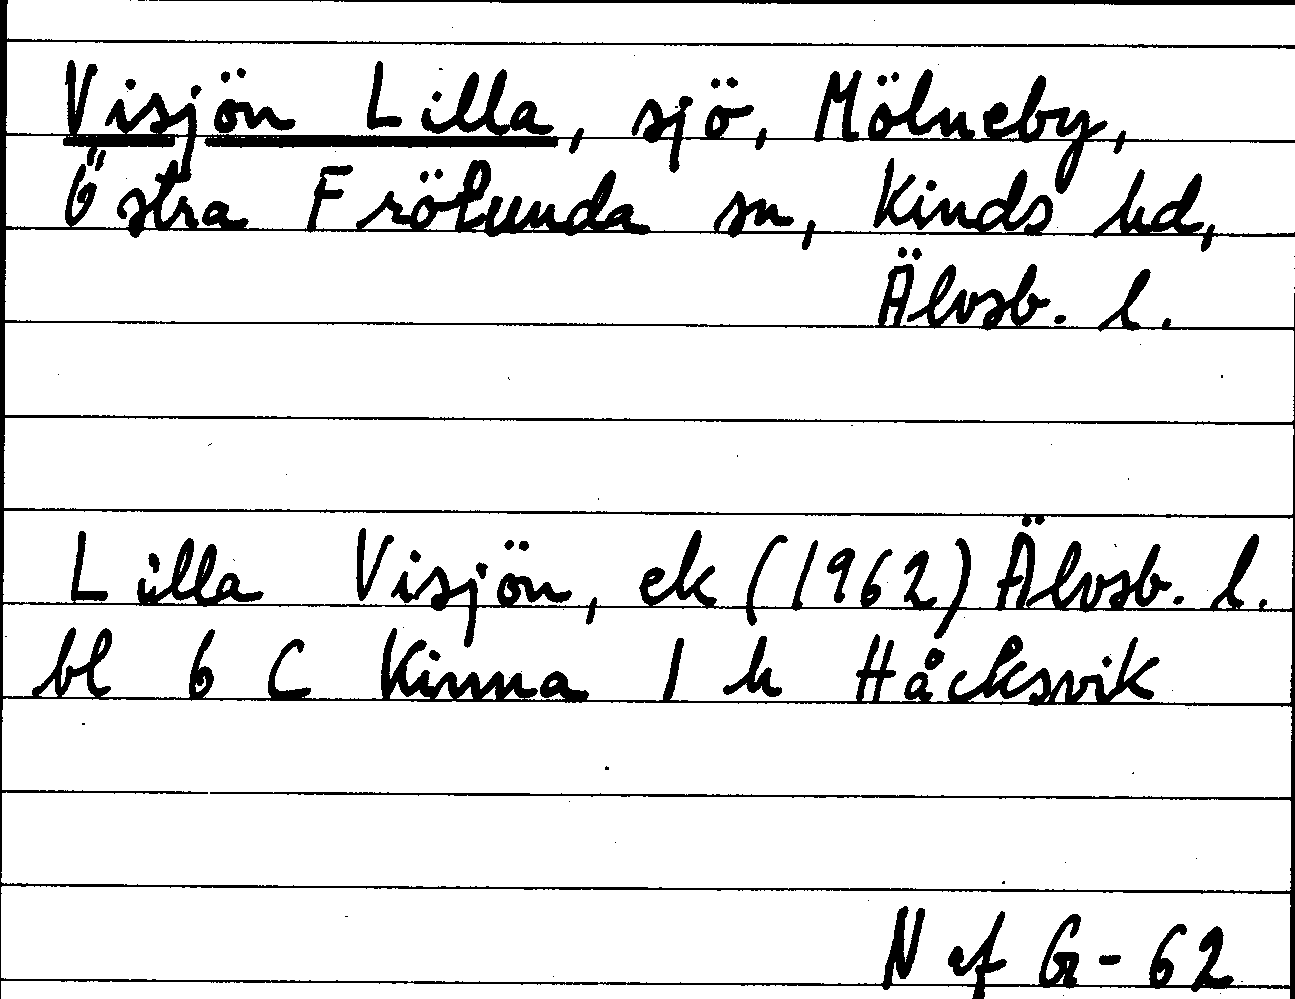 Visjön Lilla, sjö, Mölneby,
Östra Frölunda sn, Kinds hd,
Älvsb. l.
Lilla Visjön, ek (1962) Älvsb. l.
bl 6 C Kinna 1 h Håcksvik
N af G - 62